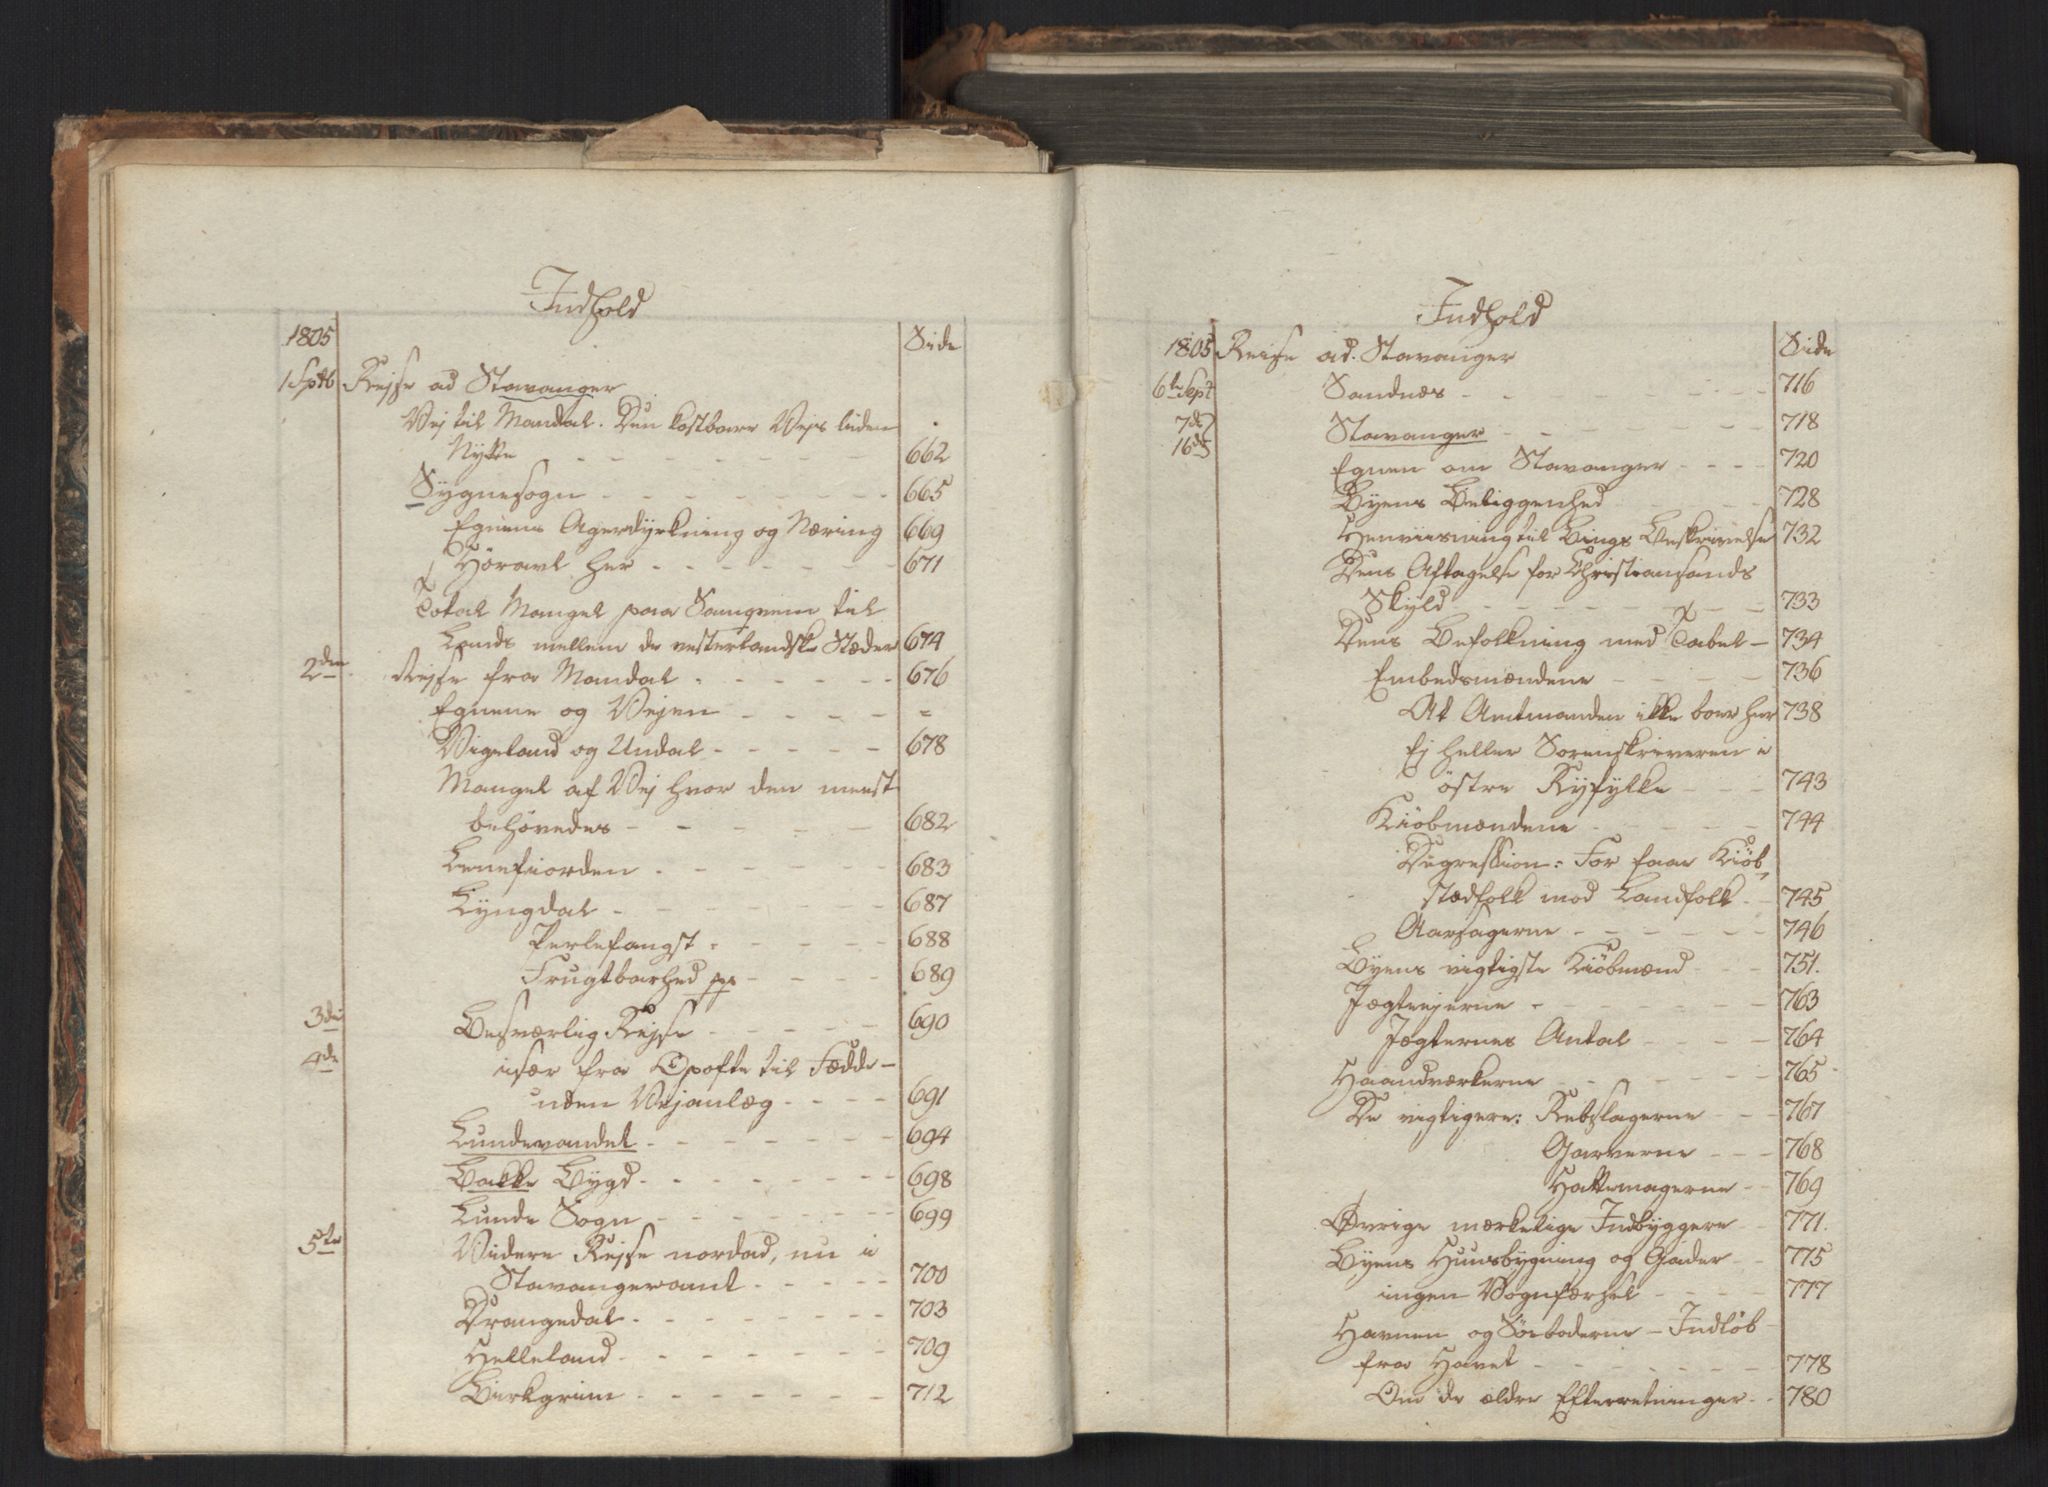 Indhold
1805 Side
1 Sptb Rejse ad Stavanger
Vej til Mandal. Den kostbare Vejs liden
Nytte - - - - - - - - 662
Sygnesogn - - - - - - - - 665
Egnens Agerdyrkning og Næring 669
Höravl her - - - - - - - 671
Total Mangel paa Samqvem til
Lands mellem de vesterlandske Stæder 674
2den Rejse fra Mandal - - - - - - 676
Egnene og Vejen - - - - - =
Vigeland og Undal - - - - - 678
Mangel af Vej hvor den meest
behövedes - - - - - 682
Lenefiorden - - - - - - - 683
Lyngdal - - - - - - - - 687
Perlefangst - - - - - 688
Frugtbarhed pp - - - - 689
3die Besværlig Rejse - - - - - 690
4de især fra Opofte til Fædde -
uden Vejanlæg - - - - 691
Lundevandet - - - - - - - 694
Bakke Bygd - - - - - - - - 698
Lunde Sogn - - - - - - - - 699
5te Videre Rejse nordad, nu i
Stavangeramt - - - - - 700
Drangedal - - - - - - - - 703
Helleland - - - - - - - 709
Birkgrim - - - - - - - 712
Indhold
1805 Reise ad. Stavanger Side
6te Sept Sandnæs - - - - - - - - 716
7de Stavanger - - - - - - - 718
16de
Egnen om Stavanger - - - - 720
Byens Beliggenhed - - - - 728
Henviisning til Bings Beskrivelse 732
Dens Aftagelse for Christiansands
Skyld - - - - - - - - 733
Dens Befolkning med Tabel - 734
Embedsmændene - - - - 736
At Amtmanden ikke boer her 738
Ej heller Sorenskriveren i
östre Ryfylke - - - 743
Kiöbmændene - - - - - 744
Digression: For faae Kiöb,
stædfolk mod Landfolk - - 745
Aarsagerne - - - - - - 746
Byens vigtigste Kiöbmænd - - - 751.
Jægteejerne - - - - - - - 763
Jægternes Antal - - - - 764
Haandværkerne - - - - - - 765
De vigtigere: Rebslagerne - - - 767
Garverne - - - 768
Hattemagerne - - 769
Øvrige mærkelige Indbyggere - - 771.
Byens Huusbygning og Gader - - 775
ingen Vognfærsel - - - - 777
Havnen og Söeboderne - Indlöb -
fra Havet - - - - - - - 778
Om de ældre Efterretninger - - 780